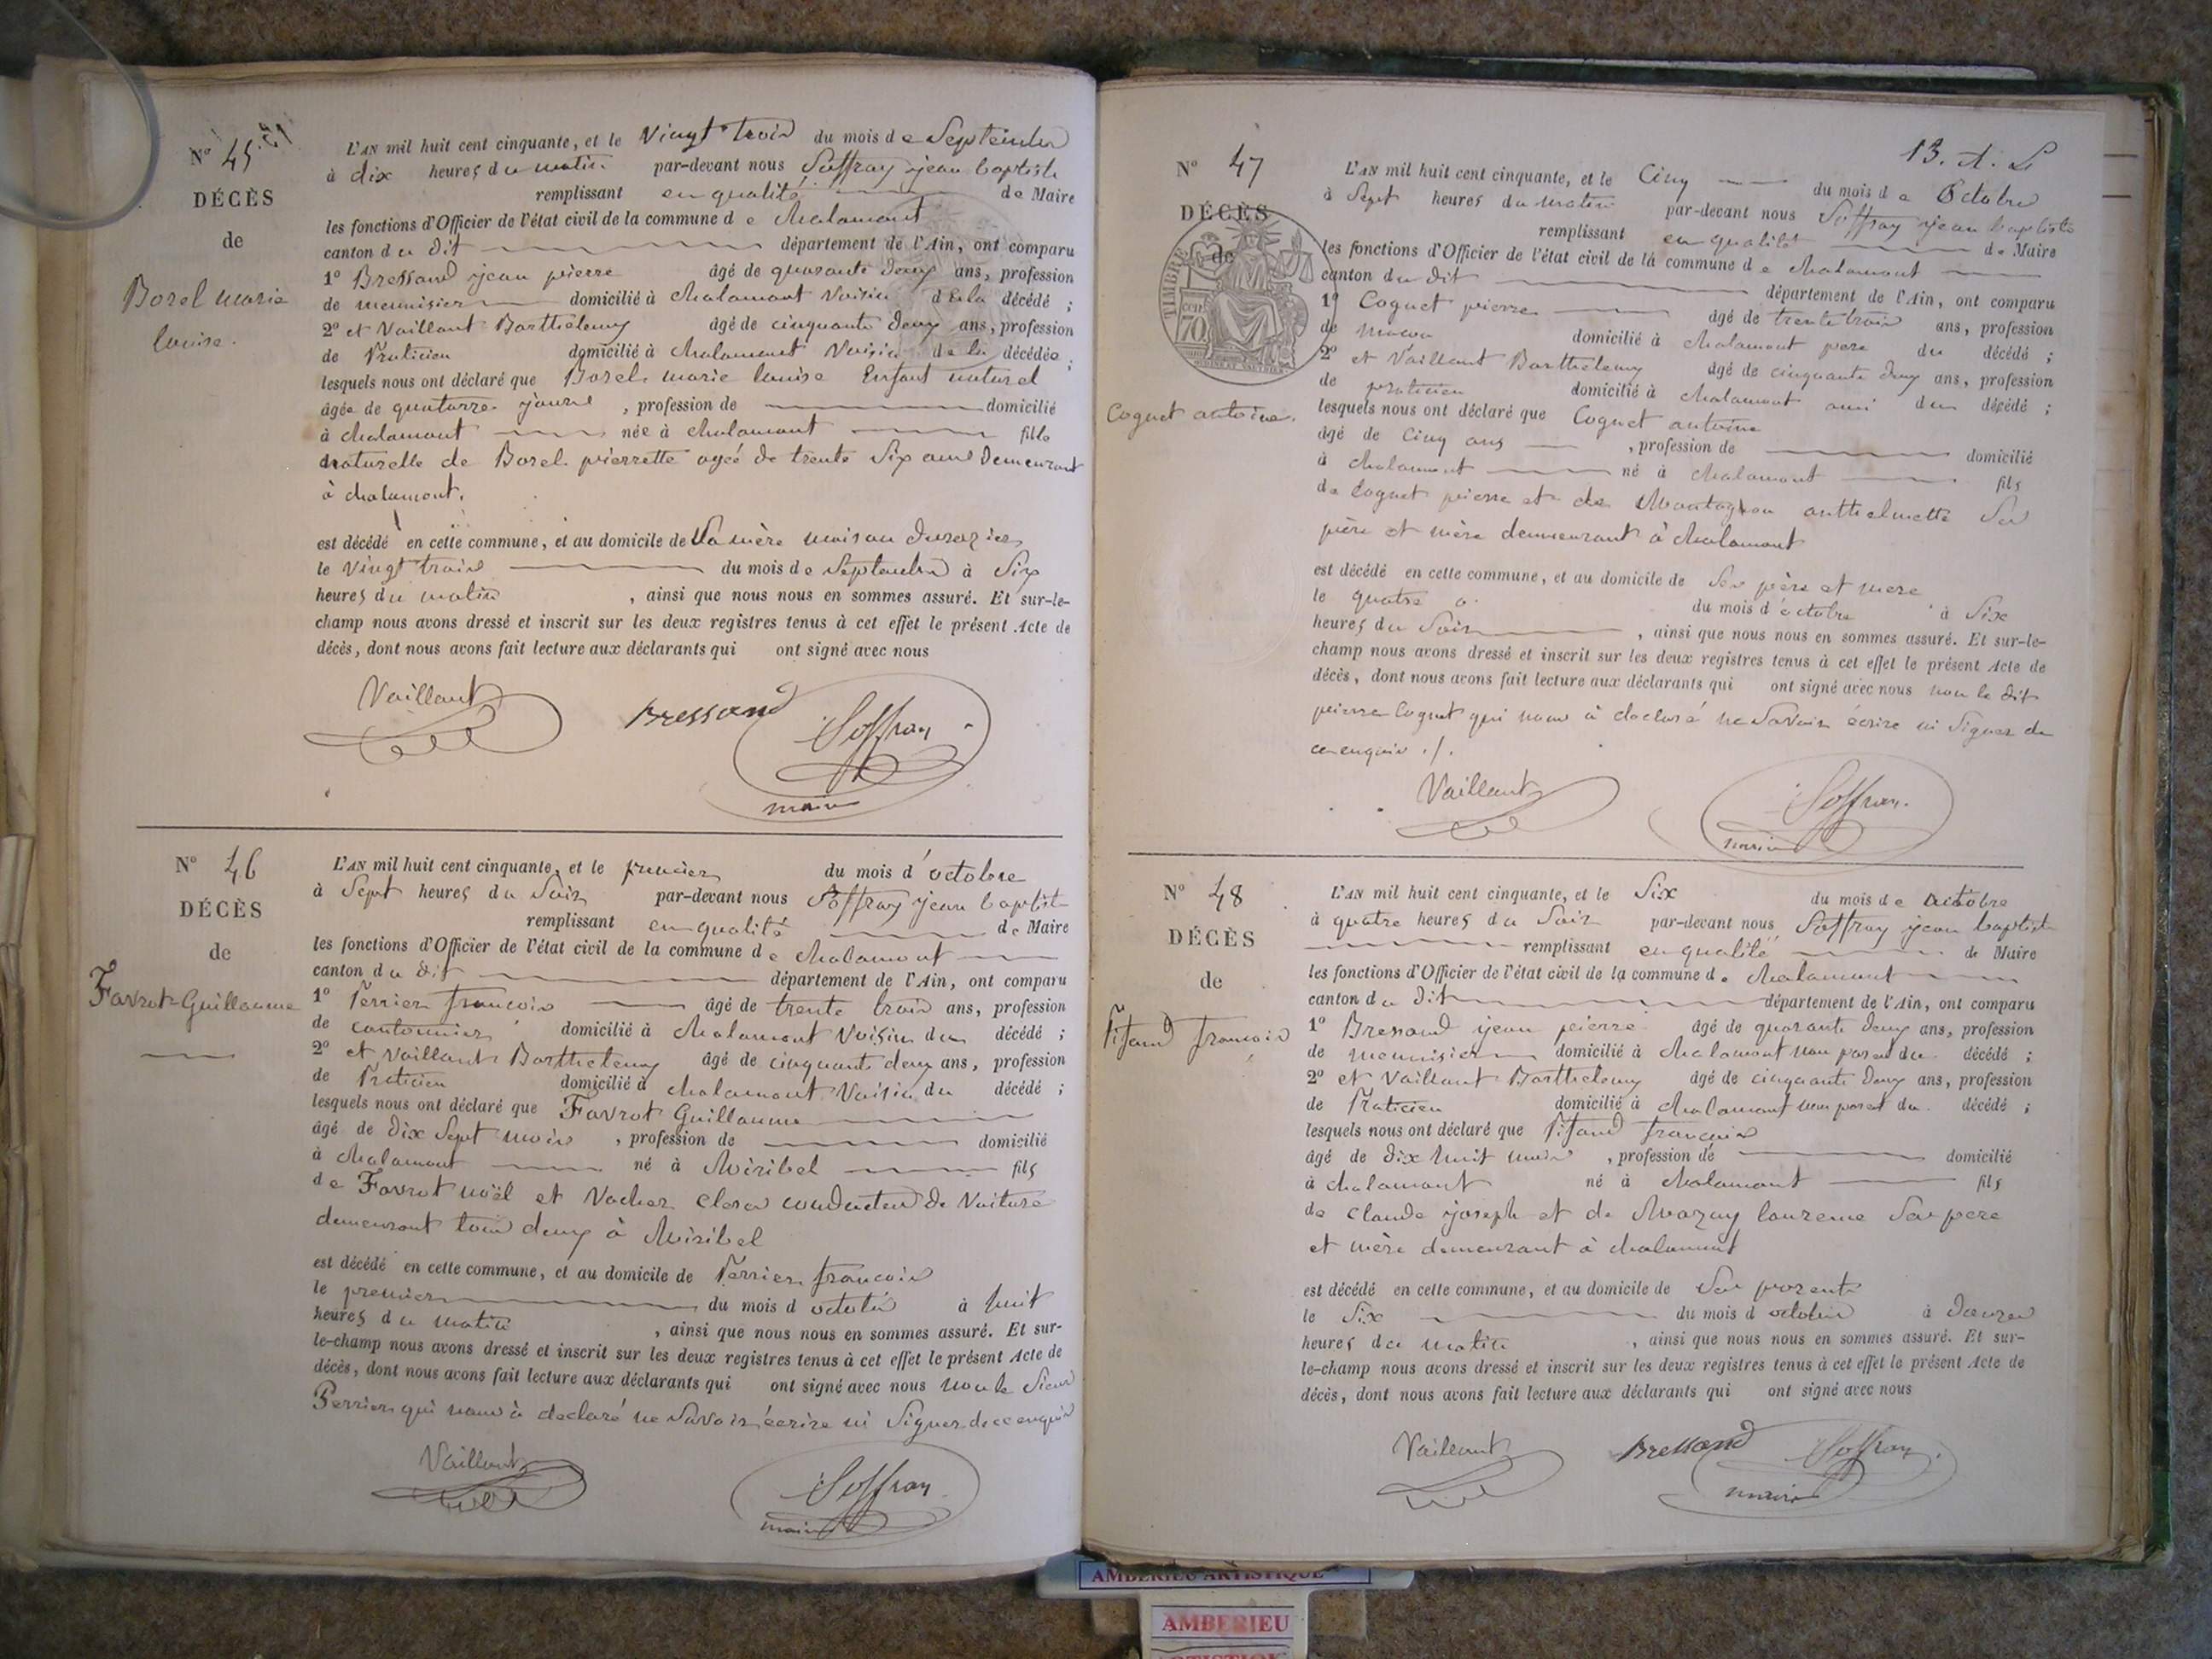 N° 45
DÉCÈS
de
Borel marie
louise.
L'AN mil huit cent cinquante, et le Vingt trois du mois de Septembre
à dix heures du matin par-devant nous Soffray jean baptiste
remplissant en qualité de Maire
les fonctions d'Officier de l'état civil de la commune de Chalamont
canton du dit département de l'Ain, ont comparu
1° Bressand jean pierre âgé de quarante deux ans, profession
de menuisier domicilié à chalamont Voisin de la décédé ;
2° et Vaillant Barthélemy âgé de cinquante deux ans, profession
de Praticien domicilié à chalamont Voisin de la décédée ;
lesquels nous ont déclaré que Borel marie louise Enfant naturel
âgée de quatorze jours , profession de domicilié
à chalamont née à chalamont fille
naturelle de Borel pierrette agée de trente Six ans Demeurant
à chalamont.
est décédé en cette commune, et au domicile de Sa mère maison
le Vingt trois du mois de Septembre à Six
heures du matin , ainsi que nous nous en sommes assuré. Et sur-le-
champ nous avons dressé et inscrit sur les deux registres tenus à cet effet le présent Acte de
décès, dont nous avons fait lecture aux déclarants qui ont signé avec nous
Vaillant Bressand Soffray
maire
N° 46
DÉCÈS
de
Favrot Guillaume
L'AN mil huit cent cinquante, et le premier du mois d'octobre
à Sept heures du Soir par-devant nous Soffray jean baptiste
remplissant en qualité de Maire
les fonctions d'Officier de l'état civil de la commune de chalamont
canton du dit département de l'Ain, ont comparu
1° Perrier francois âgé de trente trois ans, profession
de cantonnier domicilié à chalamont Voisin du décédé ;
2° et Vaillant Barthelemy âgé de cinquante deux ans, profession
de Praticien domicilié à chalamont Voisin du décédé ;
lesquels nous ont déclaré que Favrot Guillaume
âgé de dix Sept mois , profession de domicilié
à chalamont né à Miribel fils
de Favrot noël et Vacher clara conducteur de Voiture
demeurant tous deux à Miribel
est décédé en cette commune, et au domicile de Perrier francois
le premier du mois d octobre à huit
heures du matin , ainsi que nous nous en sommes assuré. Et sur-
le-champ nous avons dressé et inscrit sur les deux registres tenus à cet effet le présent Acte de
décès, dont nous avons fait lecture aux déclarants qui ont signé avec nous non le Sieur
Perrier qui nous à declaré ne Savoir écrire ni Signer de ce enquis
Vaillant Soffray
maire
13.
N° 47
DÉCÈS
de
TIMBRE
70
Coguet antoine.
L'AN mil huit cent cinquante, et le Cinq du mois de Octobre
à Sept heures du matin par-devant nous Soffray jean baptiste
remplissant en qualité de Maire
les fonctions d'Officier de l'état civil de la commune de chalamont
canton du dit département de l'Ain, ont comparu
1° Coguet pierre âgé de trente trois ans, profession
de macon domicilié à chalamont pere du décédé ;
2° et Vaillant Barthelemy âgé de cinquante deux ans, profession
de praticien domicilié à chalamont ami du décédé ;
lesquels nous ont déclaré que Coguet antoine
âgé de Cinq ans , profession de domicilié
à chalamont né à chalamont fils
de Coguet pierre et de Montagnon anthelmette Ses
père et mère demeurant à chalamont
est décédé en cette commune, et au domicile de Ses père et mere
le quatre du mois d'octobre à Six
heures du Soir , ainsi que nous nous en sommes assuré. Et sur-le-
champ nous avons dressé et inscrit sur les deux registres tenus à cet effet le présent Acte de
décès, dont nous avons fait lecture aux déclarants qui ont signé avec nous non le dit
pierre Coguet qui nous à declaré ne Savoir écrire ni Signer de
ce enquis ./.
Vaillant Soffray
maire
N° 48
DÉCÈS
de
francois
L'AN mil huit cent cinquante, et le Six du mois de octobre
à quatre heures du Soir par-devant nous Soffray jean baptiste
remplissant en qualité de Maire
les fonctions d'Officier de l'état civil de la commune de chalamont
canton du dit département de l'Ain, ont comparu
1° Bressand jean pierre âgé de quarante deux ans, profession
de menuisier domicilié à chalamont non parent du décédé ;
2° et Vaillant Barthelemy âgé de cinquante deux ans, profession
de Praticien domicilié à chalamont non parent du décédé ;
lesquels nous ont déclaré que francois
âgé de dix huit mois , profession de domicilié
à chalamont né à chalamont fils
de Claude joseph et de Mazuy Ses pere
et mère demeurant à chalamont
est décédé en cette commune, et au domicile de Ses parents
le Six du mois d octobre à
heures du matin , ainsi que nous nous en sommes assuré. Et sur-
le-champ nous avons dressé et inscrit sur les deux registres tenus à cet effet le présent Acte de
décès, dont nous avons fait lecture aux déclarants qui ont signé avec nous
Vaillant Bressand Soffray
maire
AMBERIEU ARTISTIQUE
AMBERIEU